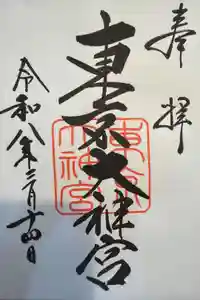 奉拝
東京大神宮
令和八年三月十四日
東京
大神宮